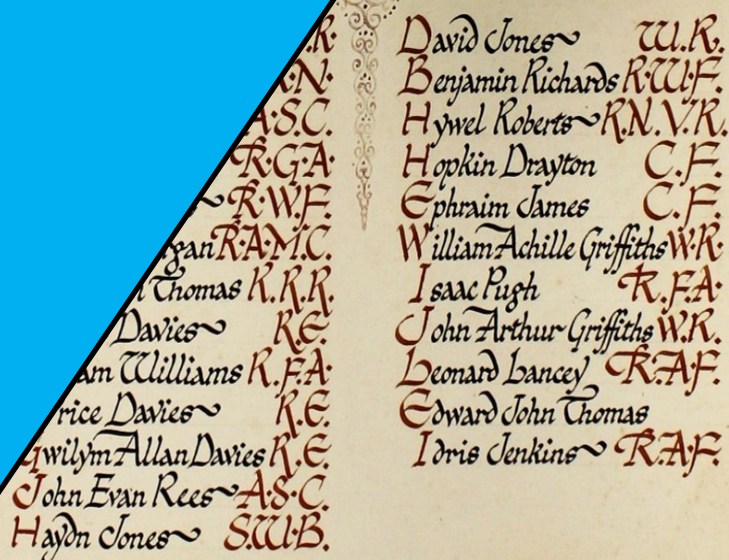 .R.
.N.
A.S.C.
R.G.A.
R.W.F.
R.A.M.C.
Thomas R.R.R.
Davies R.E.
Williams R.F.A.
Davies R.E.
Gwilym Allan Davies R.E.
John Evan Rees A.S.C.
Haydn Jones S.W.B.
David Jones W.R.
Benjamin Richards R.W.F.
Hywel Roberts R.N.V.R.
Hopkin Drayton C.F.
Ephraim James C.F.
William Achille Griffiths W.R.
Isaac Pugh R.F.A.
John Arthur Griffiths W.R.
Leonard Lancey R.A.F.
Edward John Thomas
Idris Jenkins R.A.F.